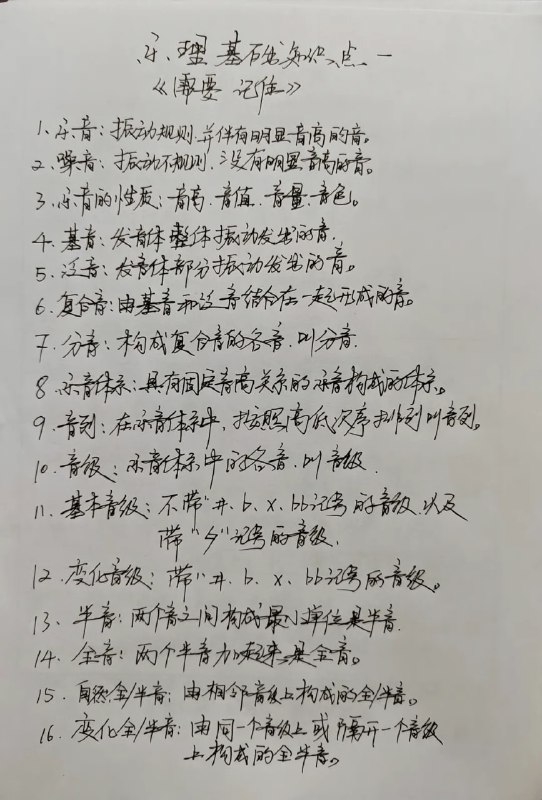 乐理基础知识点一
《需要记住》
1、乐音：振动规则、并伴有明显音高的音。
2、噪音：振动不规则、没有明显音高的音。
3、乐音的性质：音高、音值、音量、音色。
4、基音：发音体整体振动发出的音.
5、泛音：发音体部分振动发出的音。
6、复合音：由基音和泛音结合在一起形成的音。
7、分音：构成复合音的各音.叫分音.
8、乐音体系：具有固定音高关系的乐音构成的体系。
9、音列：在乐音体系中，按照高低次序排列叫音列。
10、音级：乐音体系中的各音.叫音级.
11、基本音级：不带"#、b、x、bb记号的音级.以及
带"♮"记号的音级.
12、变化音级：带"#、b、x、bb记号的音级。
13、半音：两个音之间构成最小单位是半音.
14、全音：两个半音加起来是全音。
15、自然全/半音：由相邻音级上构成的全/半音。
16、变化全/半音：由同一个音级上或隔开一个音级
上构成的全半音。